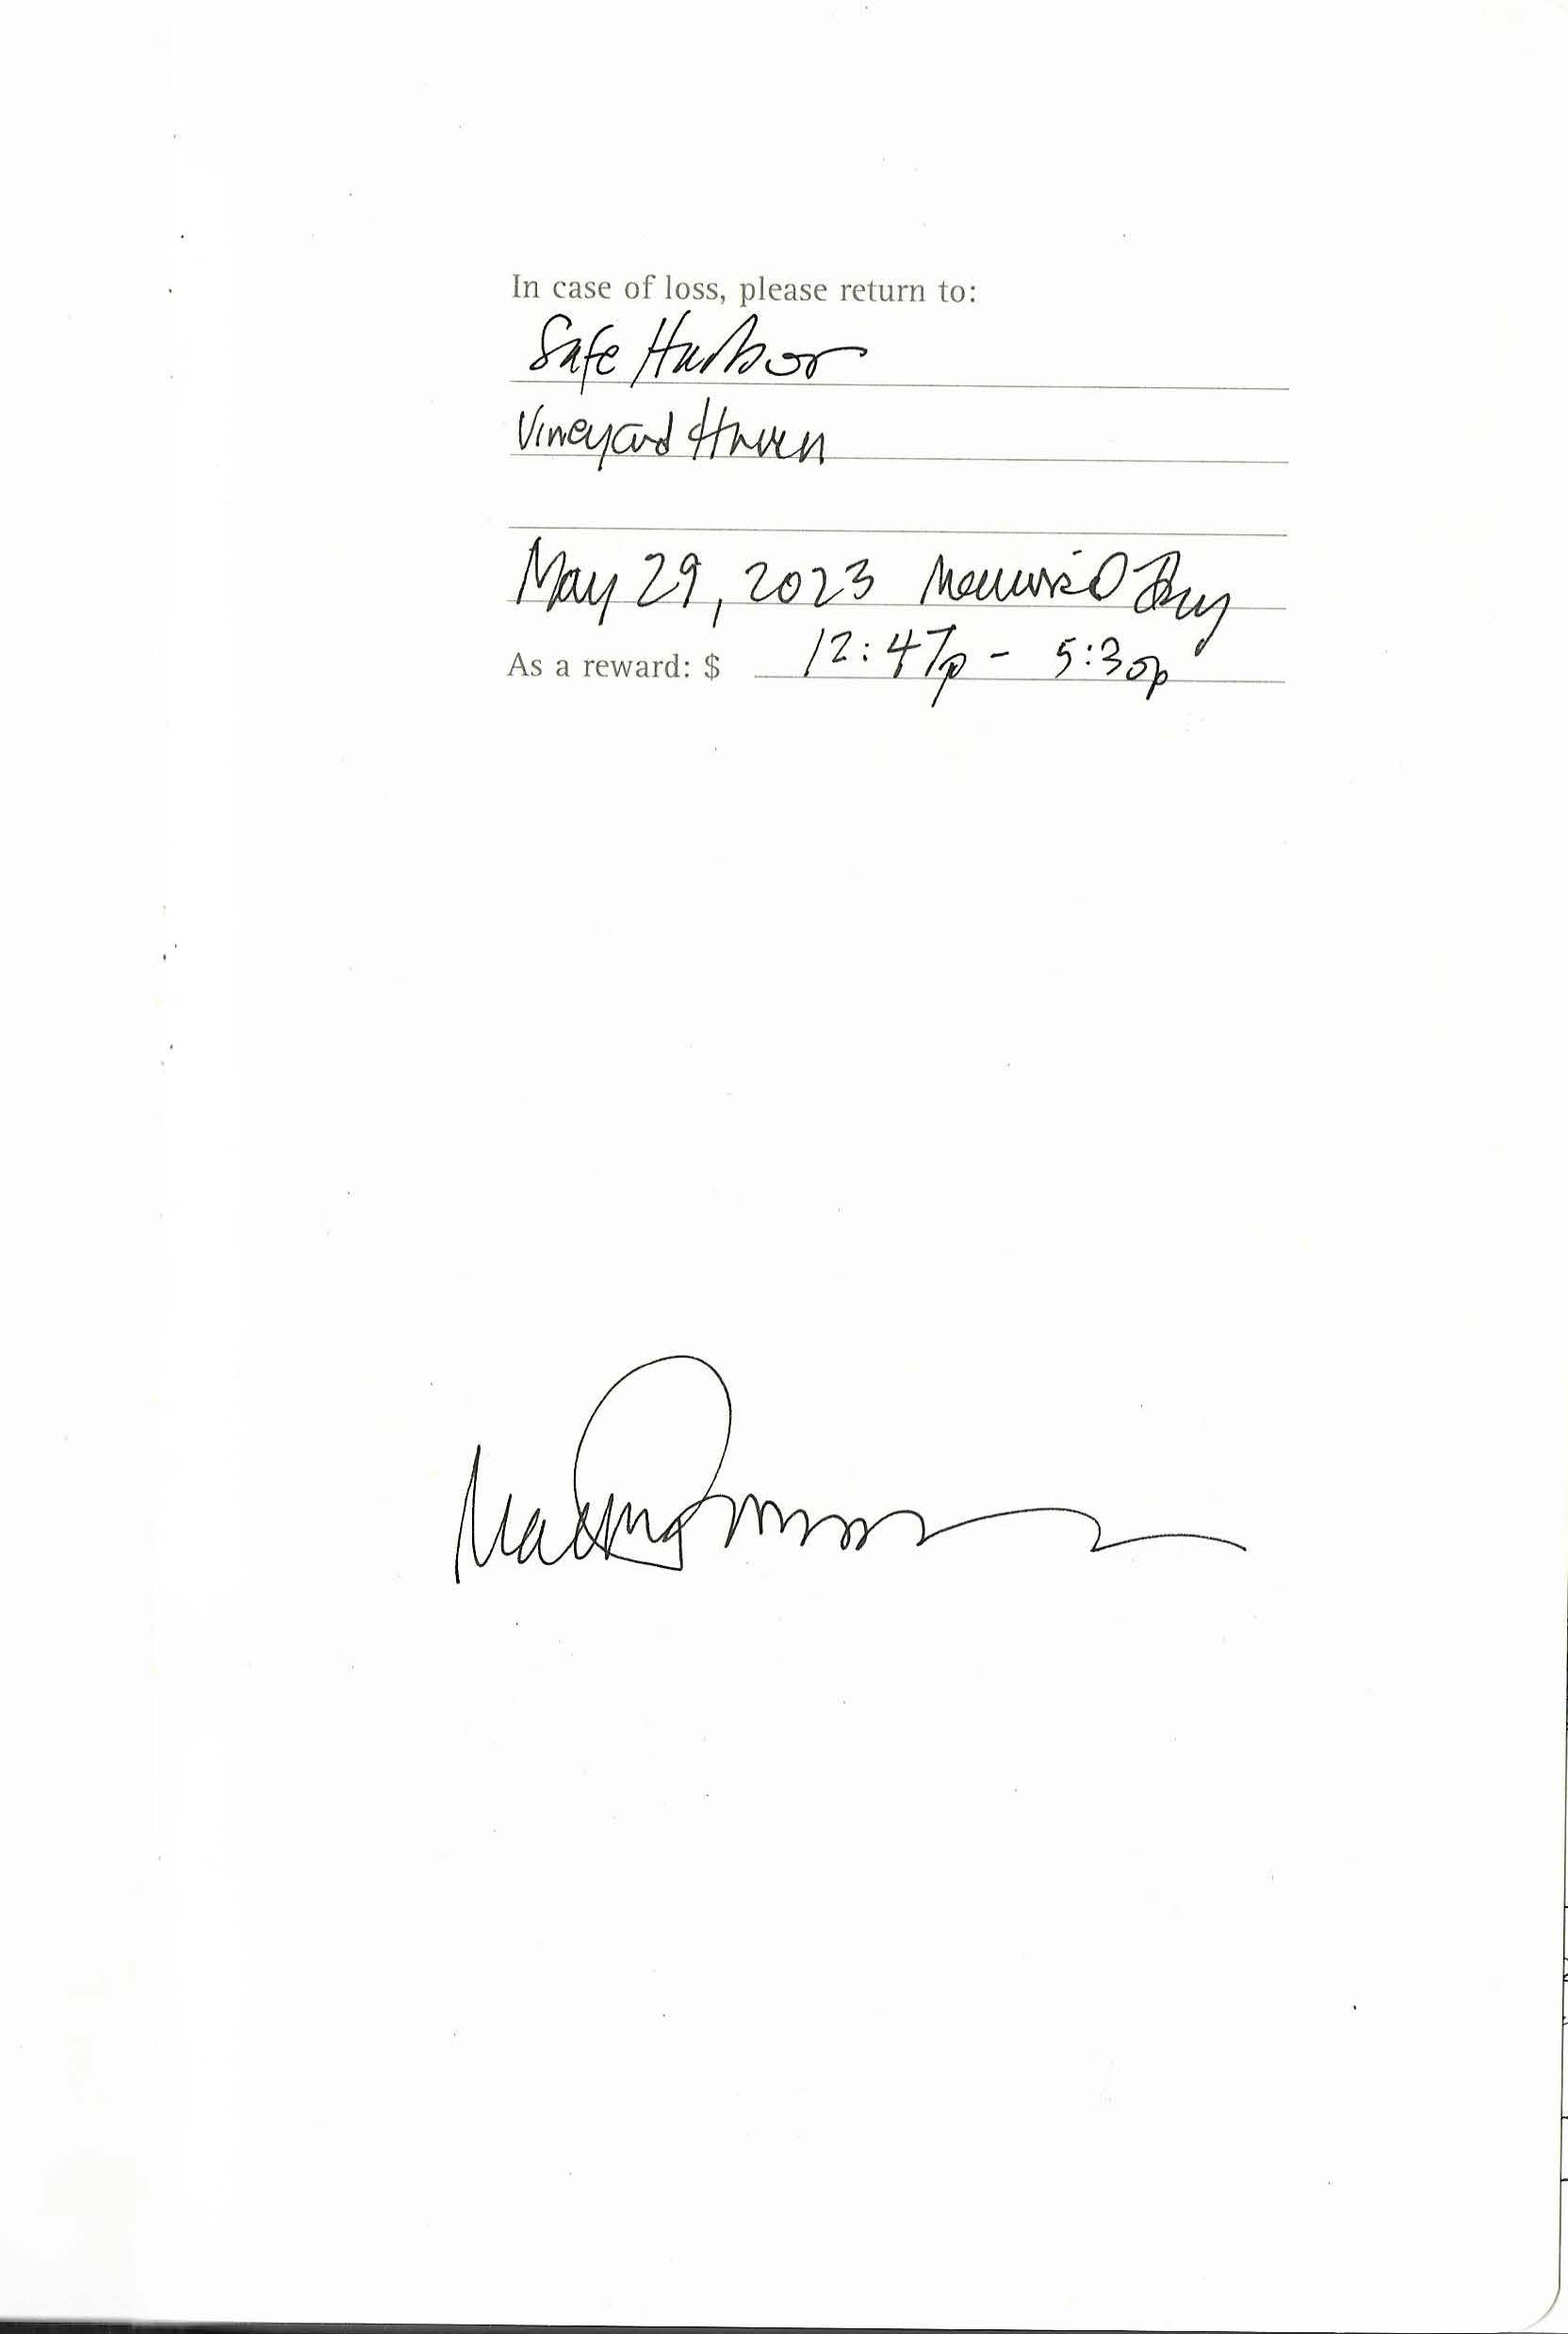 In case of loss, please return to:
Safe Harbor
Vineyard Haven
May 29, 2023 Memorial Day
As a reward: $ 12:47p - 5:30p